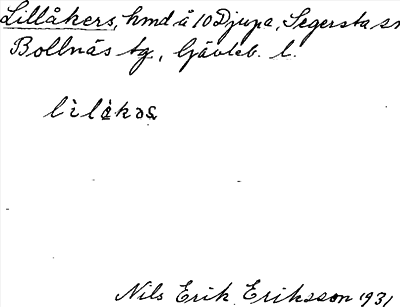 Lillåkers, hmd å 10 Djupa, Segersta sn
Bollnäs tg, Gävleb. l.
Nils Erik Eriksson 1931